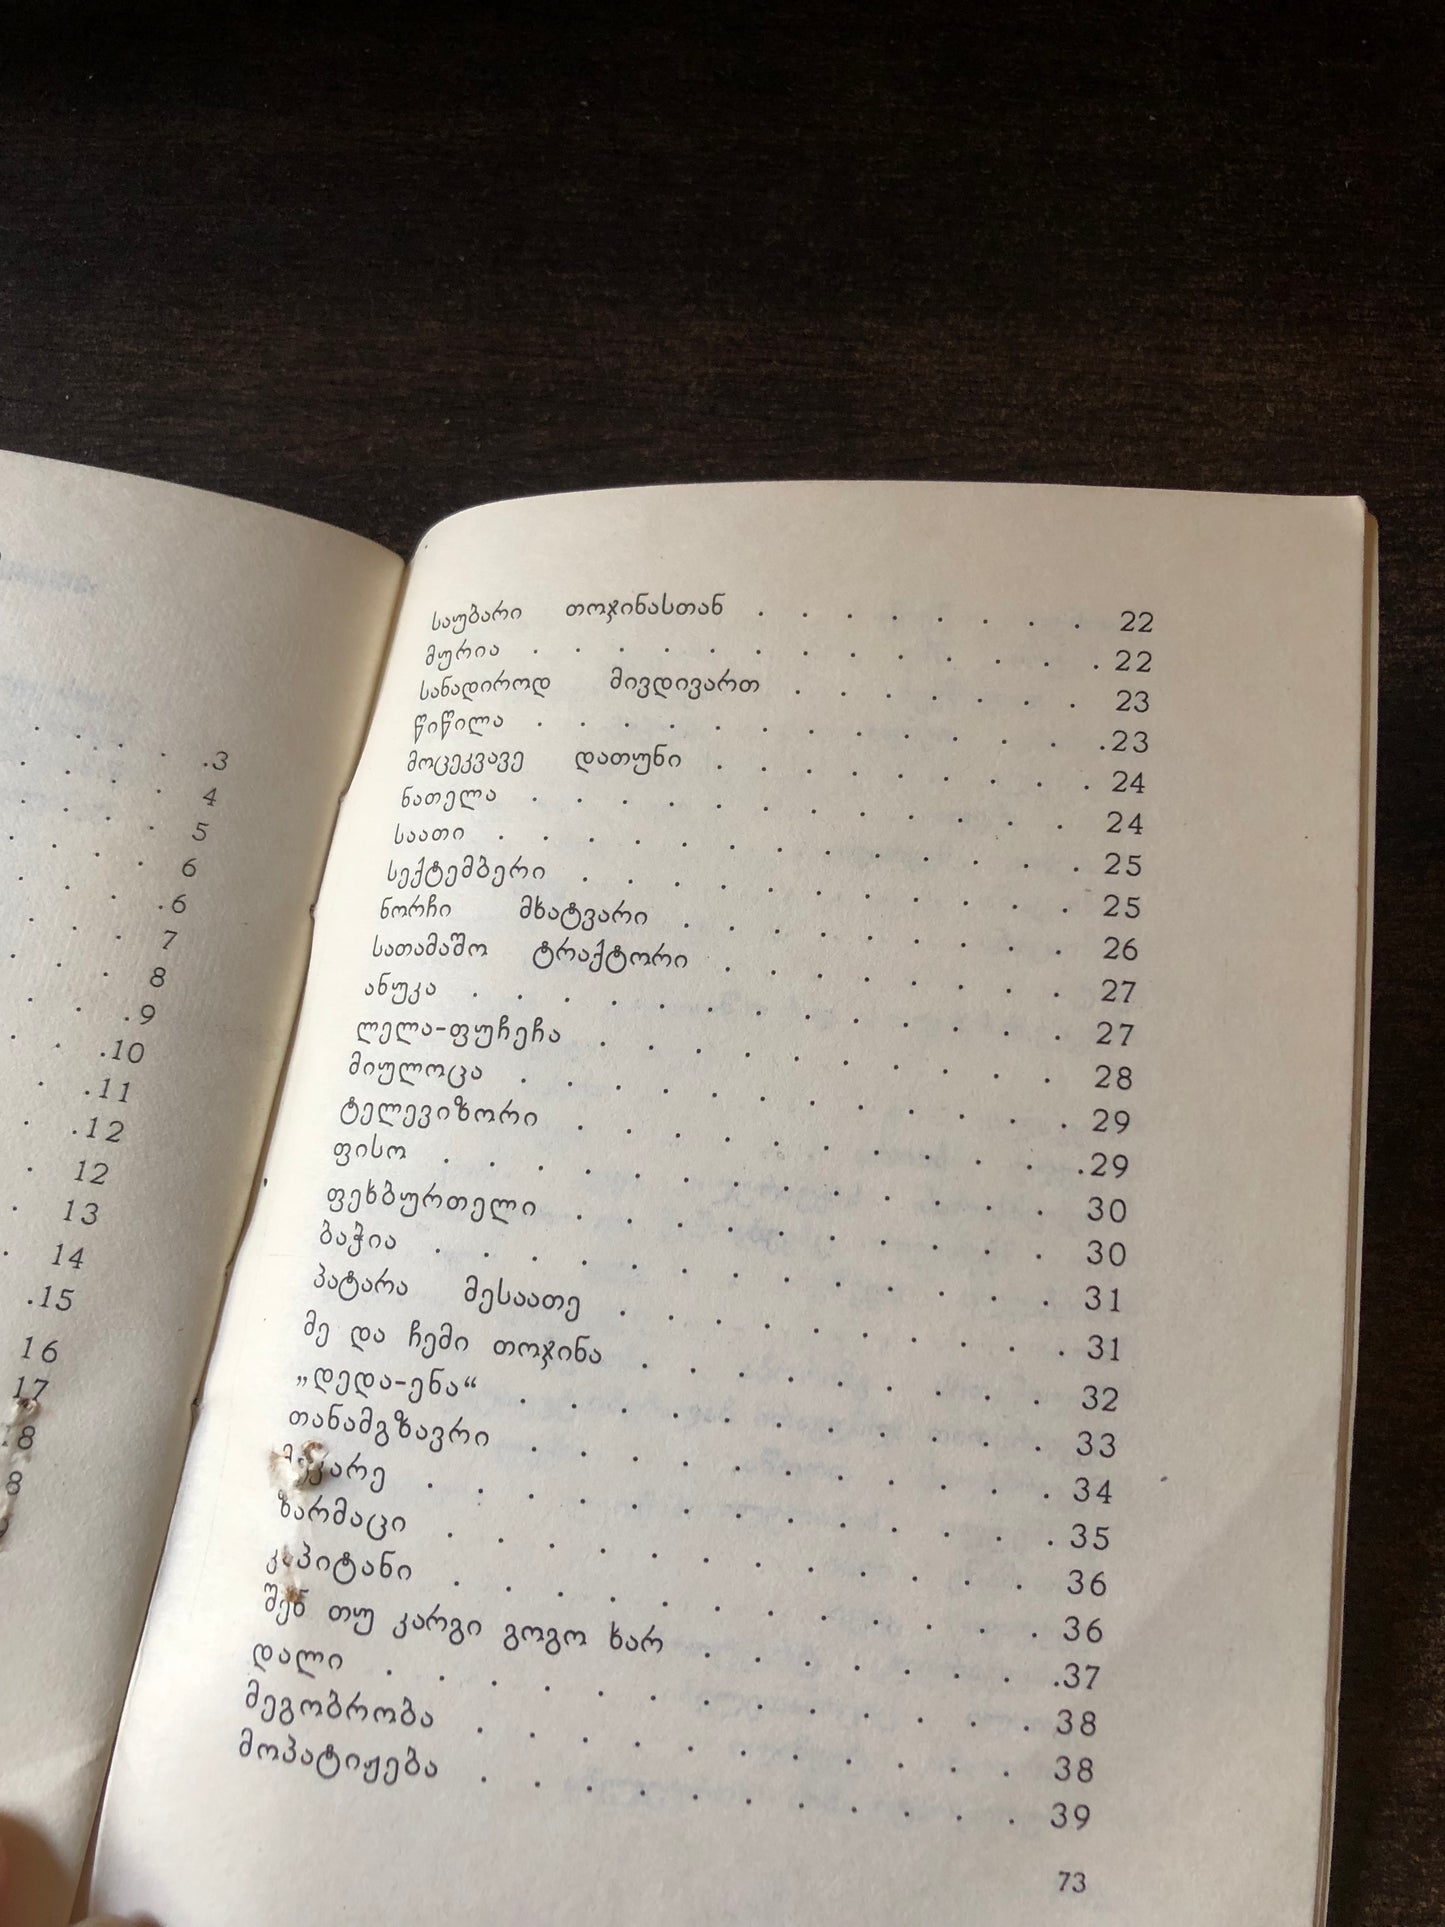 .3
4
5
6
.6
7
8
.9
.10
.11
.12
12
13
14
.15
16
17
საუბარი თოჯინასთან . . . . . . . . 22
მურია . . . . . . . . . . . . . 22
სანადიროდ მივდივართ . . . . . . . 23
წიწილა . . . . . . . . . . . . . .23
მოცეკვავე დათუნი . . . . . . . . . 24
ნათელა . . . . . . . . . . . . . 24
საათი . . . . . . . . . . . . . . 25
სექტემბერი . . . . . . . . . . . 25
ნორჩი მხატვარი . . . . . . . . . 26
სათამაშო ტრაქტორი . . . . . . . . 27
ანუკა . . . . . . . . . . . . . . 27
ლელა-ფუჩეჩა . . . . . . . . . . 28
მიულოცა . . . . . . . . . . . . 29
ტელევიზორი . . . . . . . . . . .29
ფისო . . . . . . . . . . . . . . 30
ფეხბურთელი . . . . . . . . . . 30
ბაჭია . . . . . . . . . . . . . 31
პატარა მესაათე . . . . . . . . . . 31
მე და ჩემი თოჯინა . . . . . . . . . 32
„დედა-ენა“ . . . . . . . . . . . 33
თანამგზავრი . . . . . . . . . . . 34
. . . . . . . . . . . . . 35
ზარმაცი . . . . . . . . . . . . 36
კაპიტანი . . . . . . . . . . . . 36
შენ თუ კარგი გოგო ხარ . . . . . . . .37
დალი . . . . . . . . . . . . . 38
მეგობრობა . . . . . . . . . . . 38
მოპატიჟება . . . . . . . . . . . 39
73